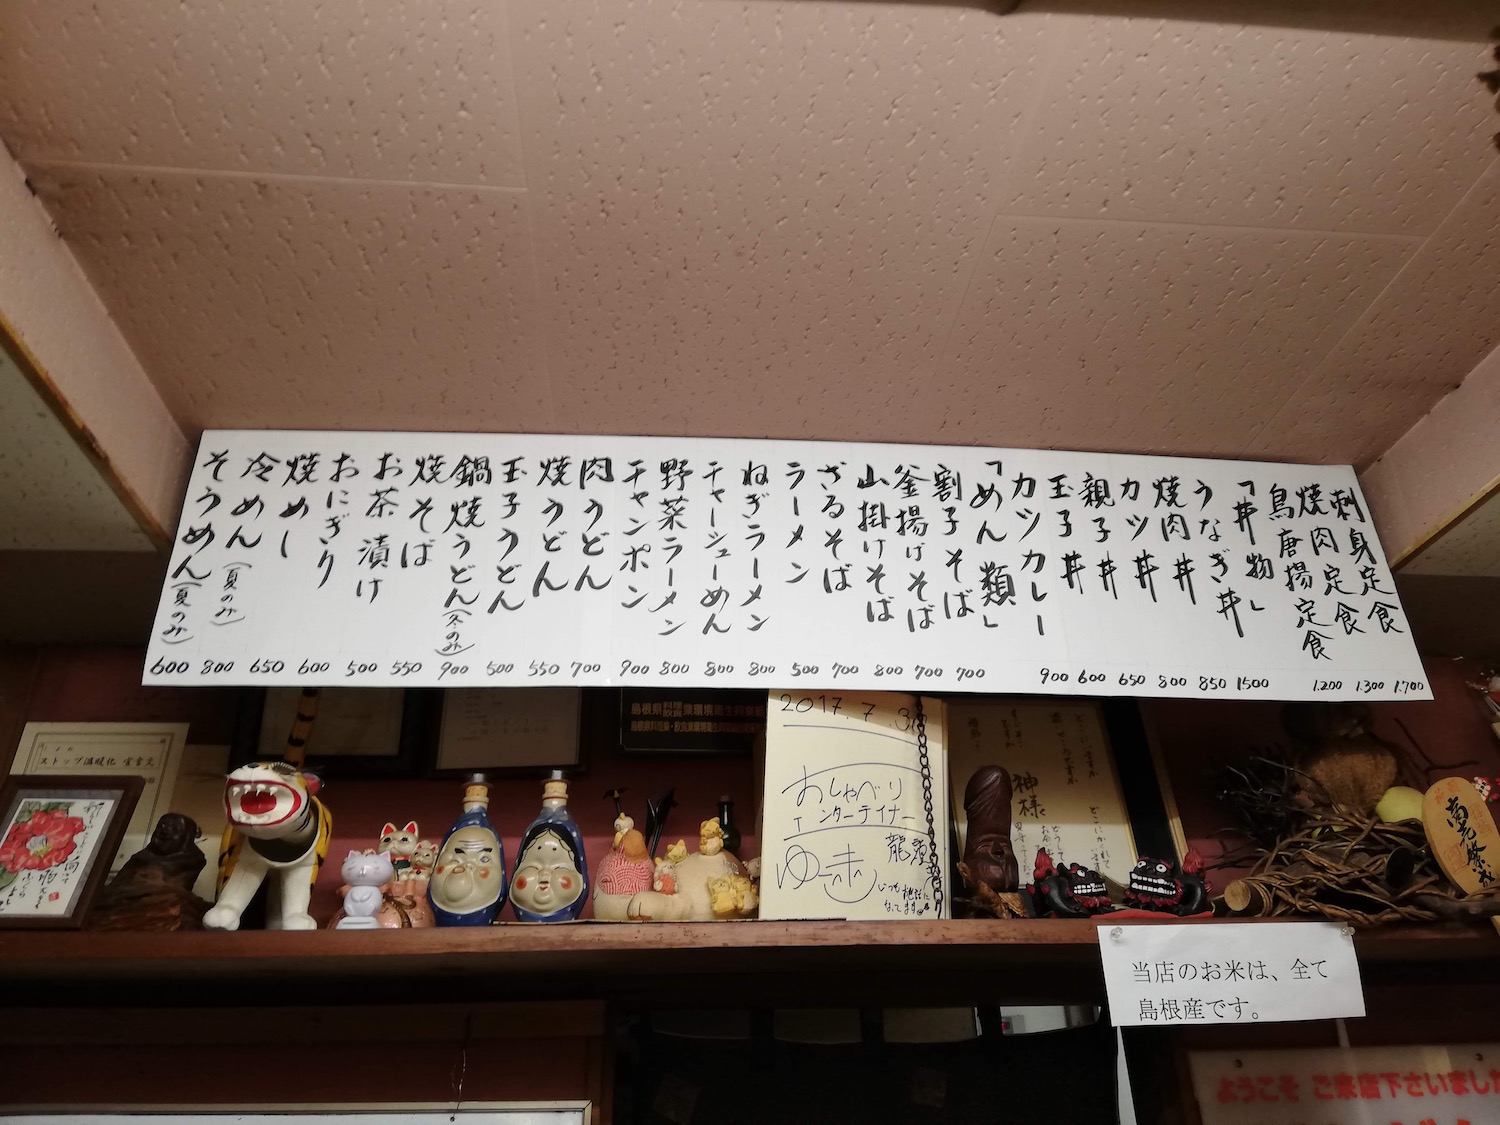 刺身定食 1.700
焼肉定食 1.300
鳥唐揚定食 1.200
「丼物」
うなぎ丼 1500
焼肉丼 850
カツ丼 800
親子丼 650
玉子丼 600
カツカレー 900
「めん類」
割子そば 700
釜揚げそば 700
山掛けそば 800
ざるそば 700
ラーメン 500
ねぎラーメン 800
チャーシューめん 800
野菜ラーメン 800
チャンポン 900
肉うどん 700
焼うどん 550
玉子うどん 500
鍋焼うどん(冬のみ) 900
焼そば 550
お茶漬け 500
おにぎり 600
焼めし 650
冷めん(夏のみ) 800
そうめん(夏のみ) 600
ストップ温暖化 宣言文
島根県
2017.7.30
おしゃべり
エンターテイナー
ゆう赤
いつも
なってます
神様
当店のお米は、全て
島根産です。
ようこそ ご来店下さいました